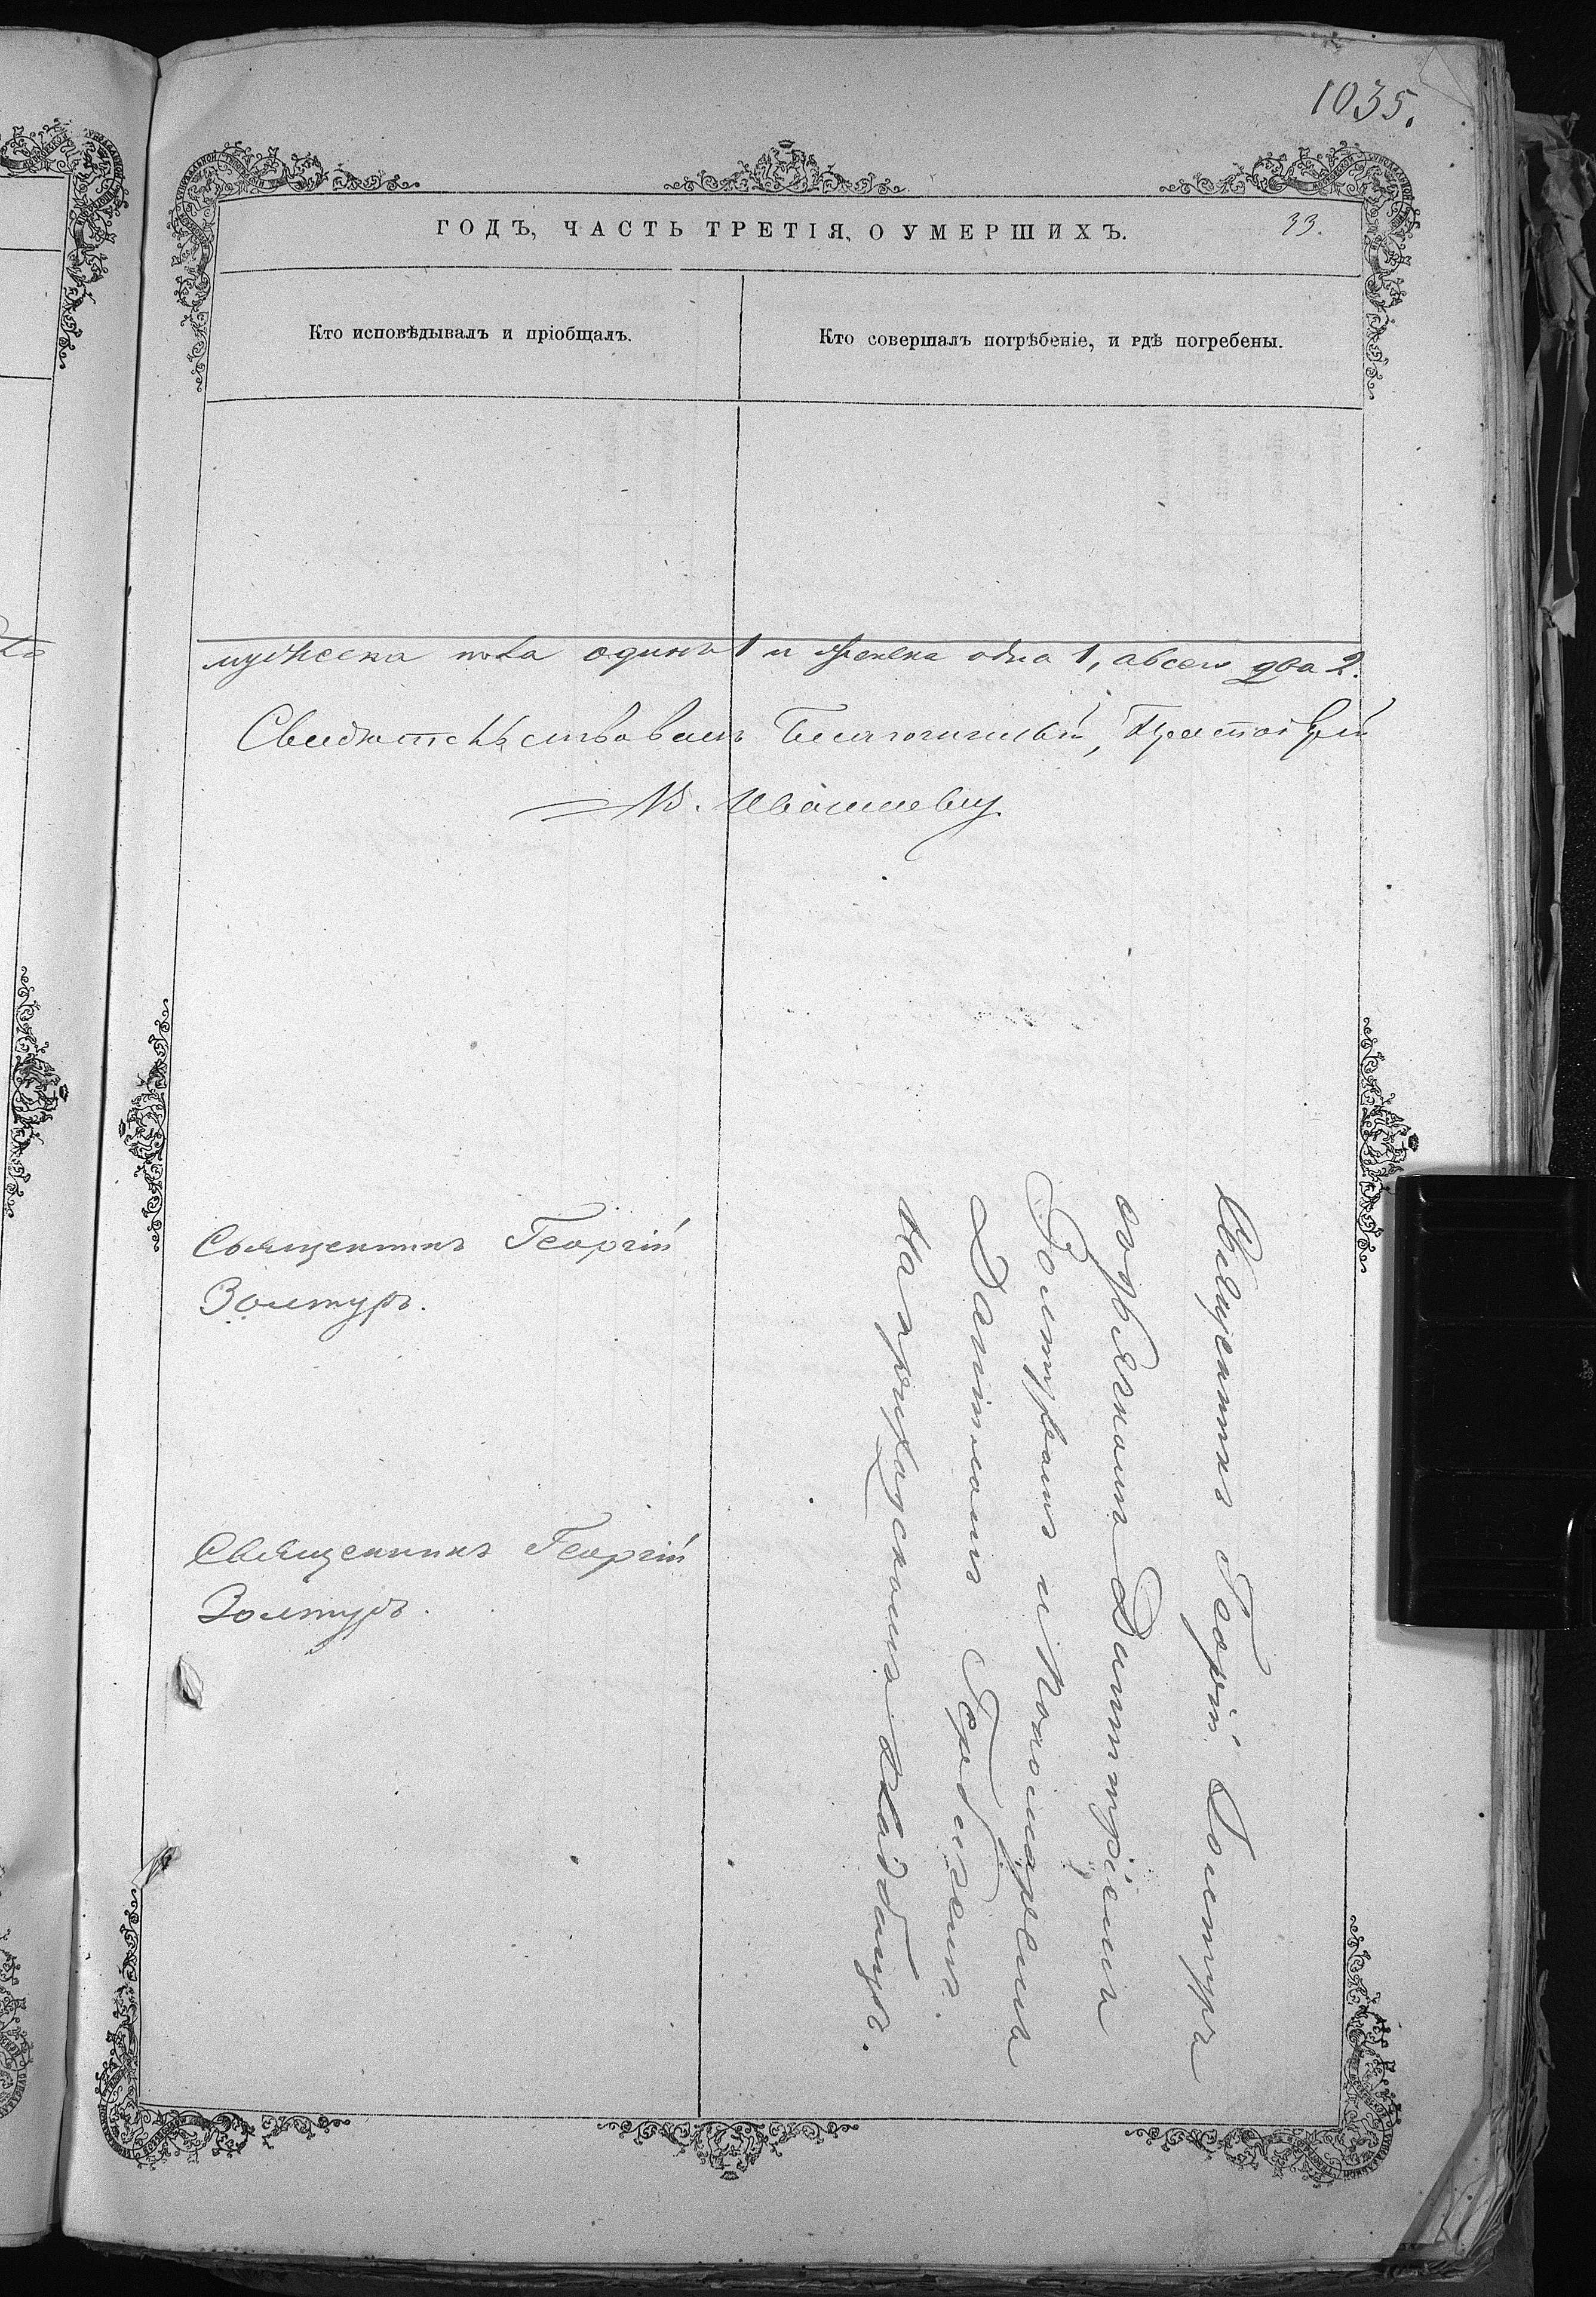 1035.
ГОДЪ, ЧАСТЬ ТРЕТІЯ, О УМЕРШИХЪ.
33.
Кто исповѣдывалъ и пріобщалъ.
Кто совершалъ погрѣбеніе, и гдѣ погребены.
мужеска пола одинъ 1 и женска одна 1, а всего два 2.
Свидѣтельствовалъ Благочинный, Протоіерей
Священникъ Георгій
Золтуръ.
Священникъ Георгій
Золтуръ.
Священникъ Георгій Золтуръ
съ Діакономъ Димитріемъ
Золтуромъ и Пономаремъ
На приходскомъ кладбищѣ.